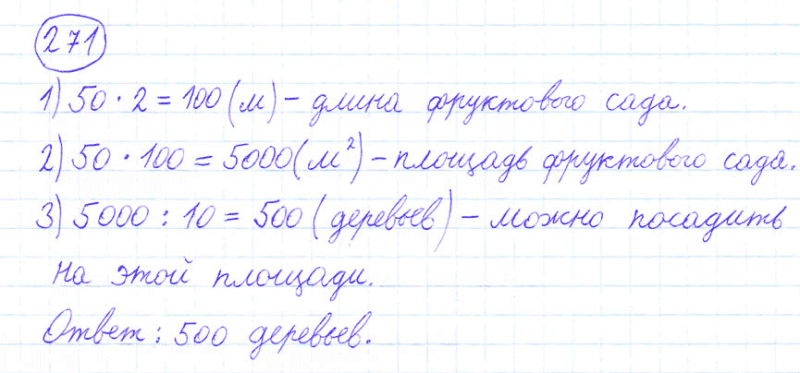 271
1) 50 · 2 = 100 (м) – длина фруктового сада.
2) 50 · 100 = 5000 (м²) – площадь фруктового сада.
3) 5000 : 10 = 500 (деревьев) – можно посадить
на этой площади.
Ответ: 500 деревьев.